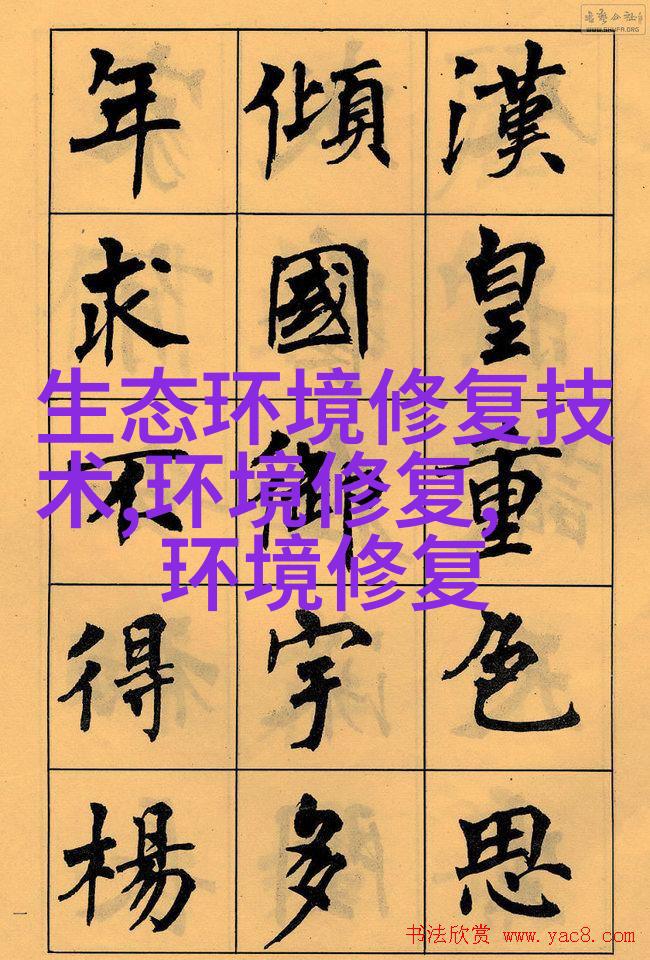 漢皇重色思
傾國御宇多
年求不得楊
生态环境修复技
术,环境修复,
环境修复
一
WWW.SHUFA.ORG
书法欣赏 www.yac8.com